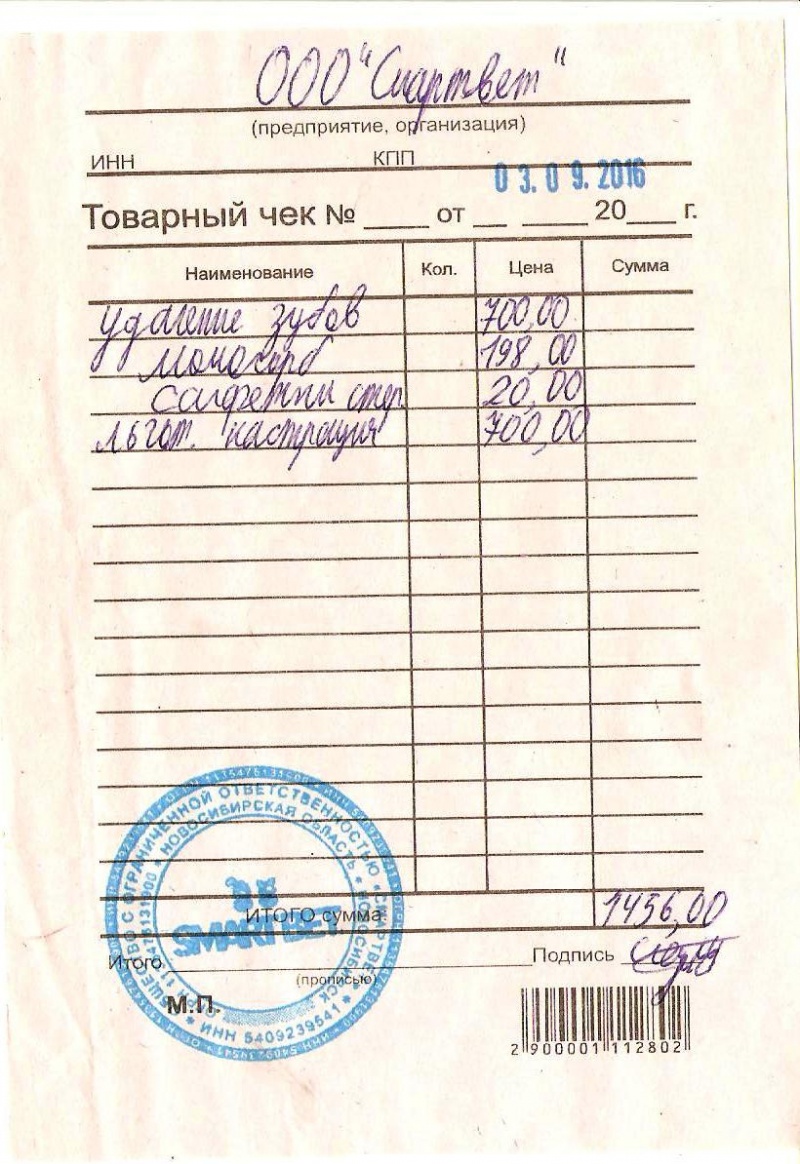 ООО "Смартвет"
(предприятие, организация)
ИНН КПП
03.09.2016
Товарный чек № ____ от __ ____ 20___ г.
Наименование Кол. Цена Сумма
удаление зубов 700,00
моносорб 198,00
салфетки стер. 20,00
льгот. кастрация 700,00
ИТОГО сумма 1456,00
SMARTВЕТ
Итого Подпись
(прописью)
М.П.
ОБЩЕСТВО С ОГРАНИЧЕННОЙ ОТВЕТСТВЕННОСТЬЮ "СМАРТВЕТ"
НОВОСИБИРСКАЯ ОБЛАСТЬ * НОВОСИБИРСК
* ИНН 5409239541 *
2 900001 112802